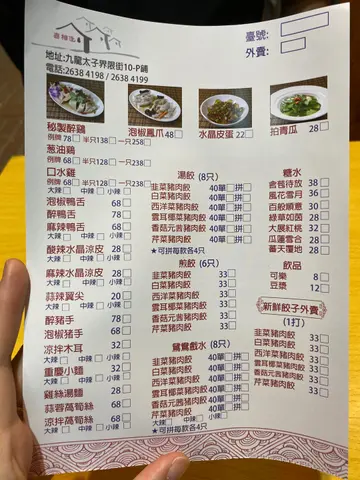 喜臨法
地址:九龍太子界限街10-P鋪
電話:2638 4198 / 2638 4199
臺號:
外賣:
秘製醉雞
例牌 78 半只138 一只258
泡椒鳳爪 48
水晶皮蛋 22
拍青瓜 28
蔥油雞
例牌 68 半只128 一只238
口水雞
例牌 68 半只128 一只238
大辣 中辣 小辣
泡椒鴨舌 68
醉鴨舌 78
麻辣鴨舌 68
大辣 中辣 小辣
酸辣水晶涼皮 28
大辣 中辣 小辣
麻辣水晶涼皮 28
大辣 中辣 小辣
蒜辣翼尖 20
大辣 中辣 小辣
醉豬手 78
泡椒豬手 68
涼拌木耳 32
大辣 中辣 小辣
重慶小麵 32
大辣 中辣 小辣
雞絲湯麵 28
蒜蓉萵筍絲 68
涼拌萵筍絲 68
大辣 中辣 小辣
湯餃 (8只)
韮菜豬肉餃 40單 拼
白菜豬肉餃 40單 拼
西洋菜豬肉餃 40單 拼
雲耳椰菜豬肉餃 40單 拼
香菇元茜豬肉餃 40單 拼
芹菜豬肉餃 40單 拼
★可拼每款各4只
煎餃 (6只)
韮菜豬肉餃 33
白菜豬肉餃 33
西洋菜豬肉餃 33
雲耳椰菜豬肉餃 33
香菇元茜豬肉餃 33
芹菜豬肉餃 33
鴛鴦戲水 (8只)
韮菜豬肉餃 40單 拼
白菜豬肉餃 40單 拼
西洋菜豬肉餃 40單 拼
雲耳椰菜豬肉餃 40單 拼
香菇元茜豬肉餃 40單 拼
芹菜豬肉餃 40單 拼
大辣 中辣 小辣
★可拼每款各4只
糖水
倉氂待放 38
風花雪月 36
百般順意 30
綠草如茵 28
大展紅桃 32
瓜蓮雪合 28
蕃天覆地 28
飲品
可樂 8
豆漿 12
新鮮餃子外賣
(1打)
韮菜豬肉餃 33
白菜豬肉餃 33
西洋菜豬肉餃 33
雲耳椰菜豬肉餃 33
香菇元茜豬肉餃 33
芹菜豬肉餃 33